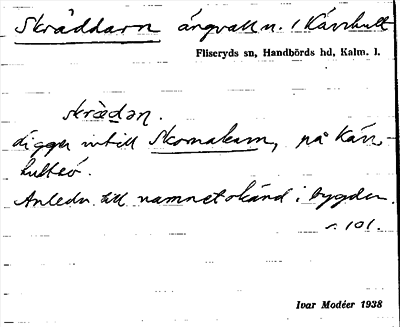 Skräddarn ängvall n. i Kävrhult
Fliseryds sn, Handbörds hd, Kalm. l.
skrædən.
ligger intill Skomakarn, på Käv-
hulteö.
Anledn. till namnet okänd i bygden.
s. 101.
Ivar Modéer 1938